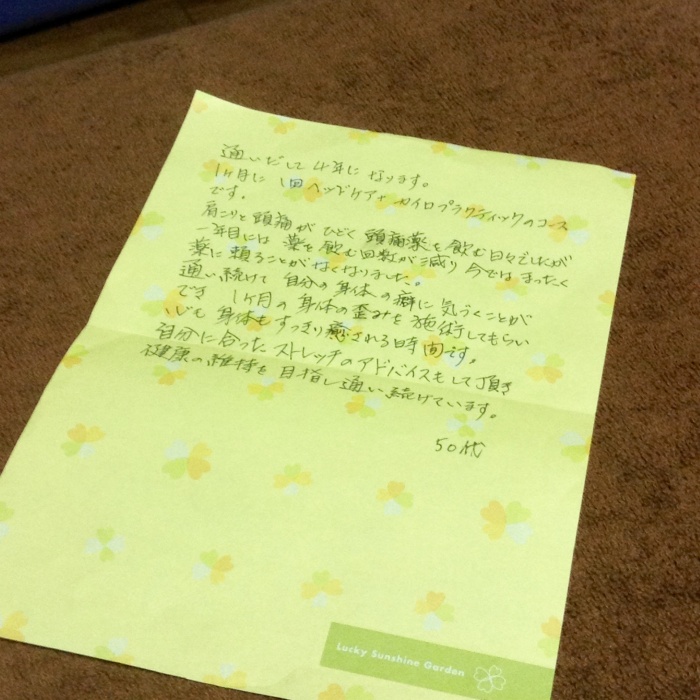 通いだして4年になります。
1ヶ月に1回ヘッドケア+カイロプラクティックのコース
です。
肩こりと頭痛がひどく頭痛薬を飲む日々でしたが
一年目には薬を飲む回数が減り今ではまったく
薬に頼ることがなくなりました。
通い続けて自分の身体の癖に気づくことが
でき 1ヶ月の身体の歪みを施術してもらい
心も身体もすっきり癒される時間です。
自分に合ったストレッチのアドバイスもして頂き
健康の維持を目指し通い続けています。
50代
Lucky Sunshine Garden